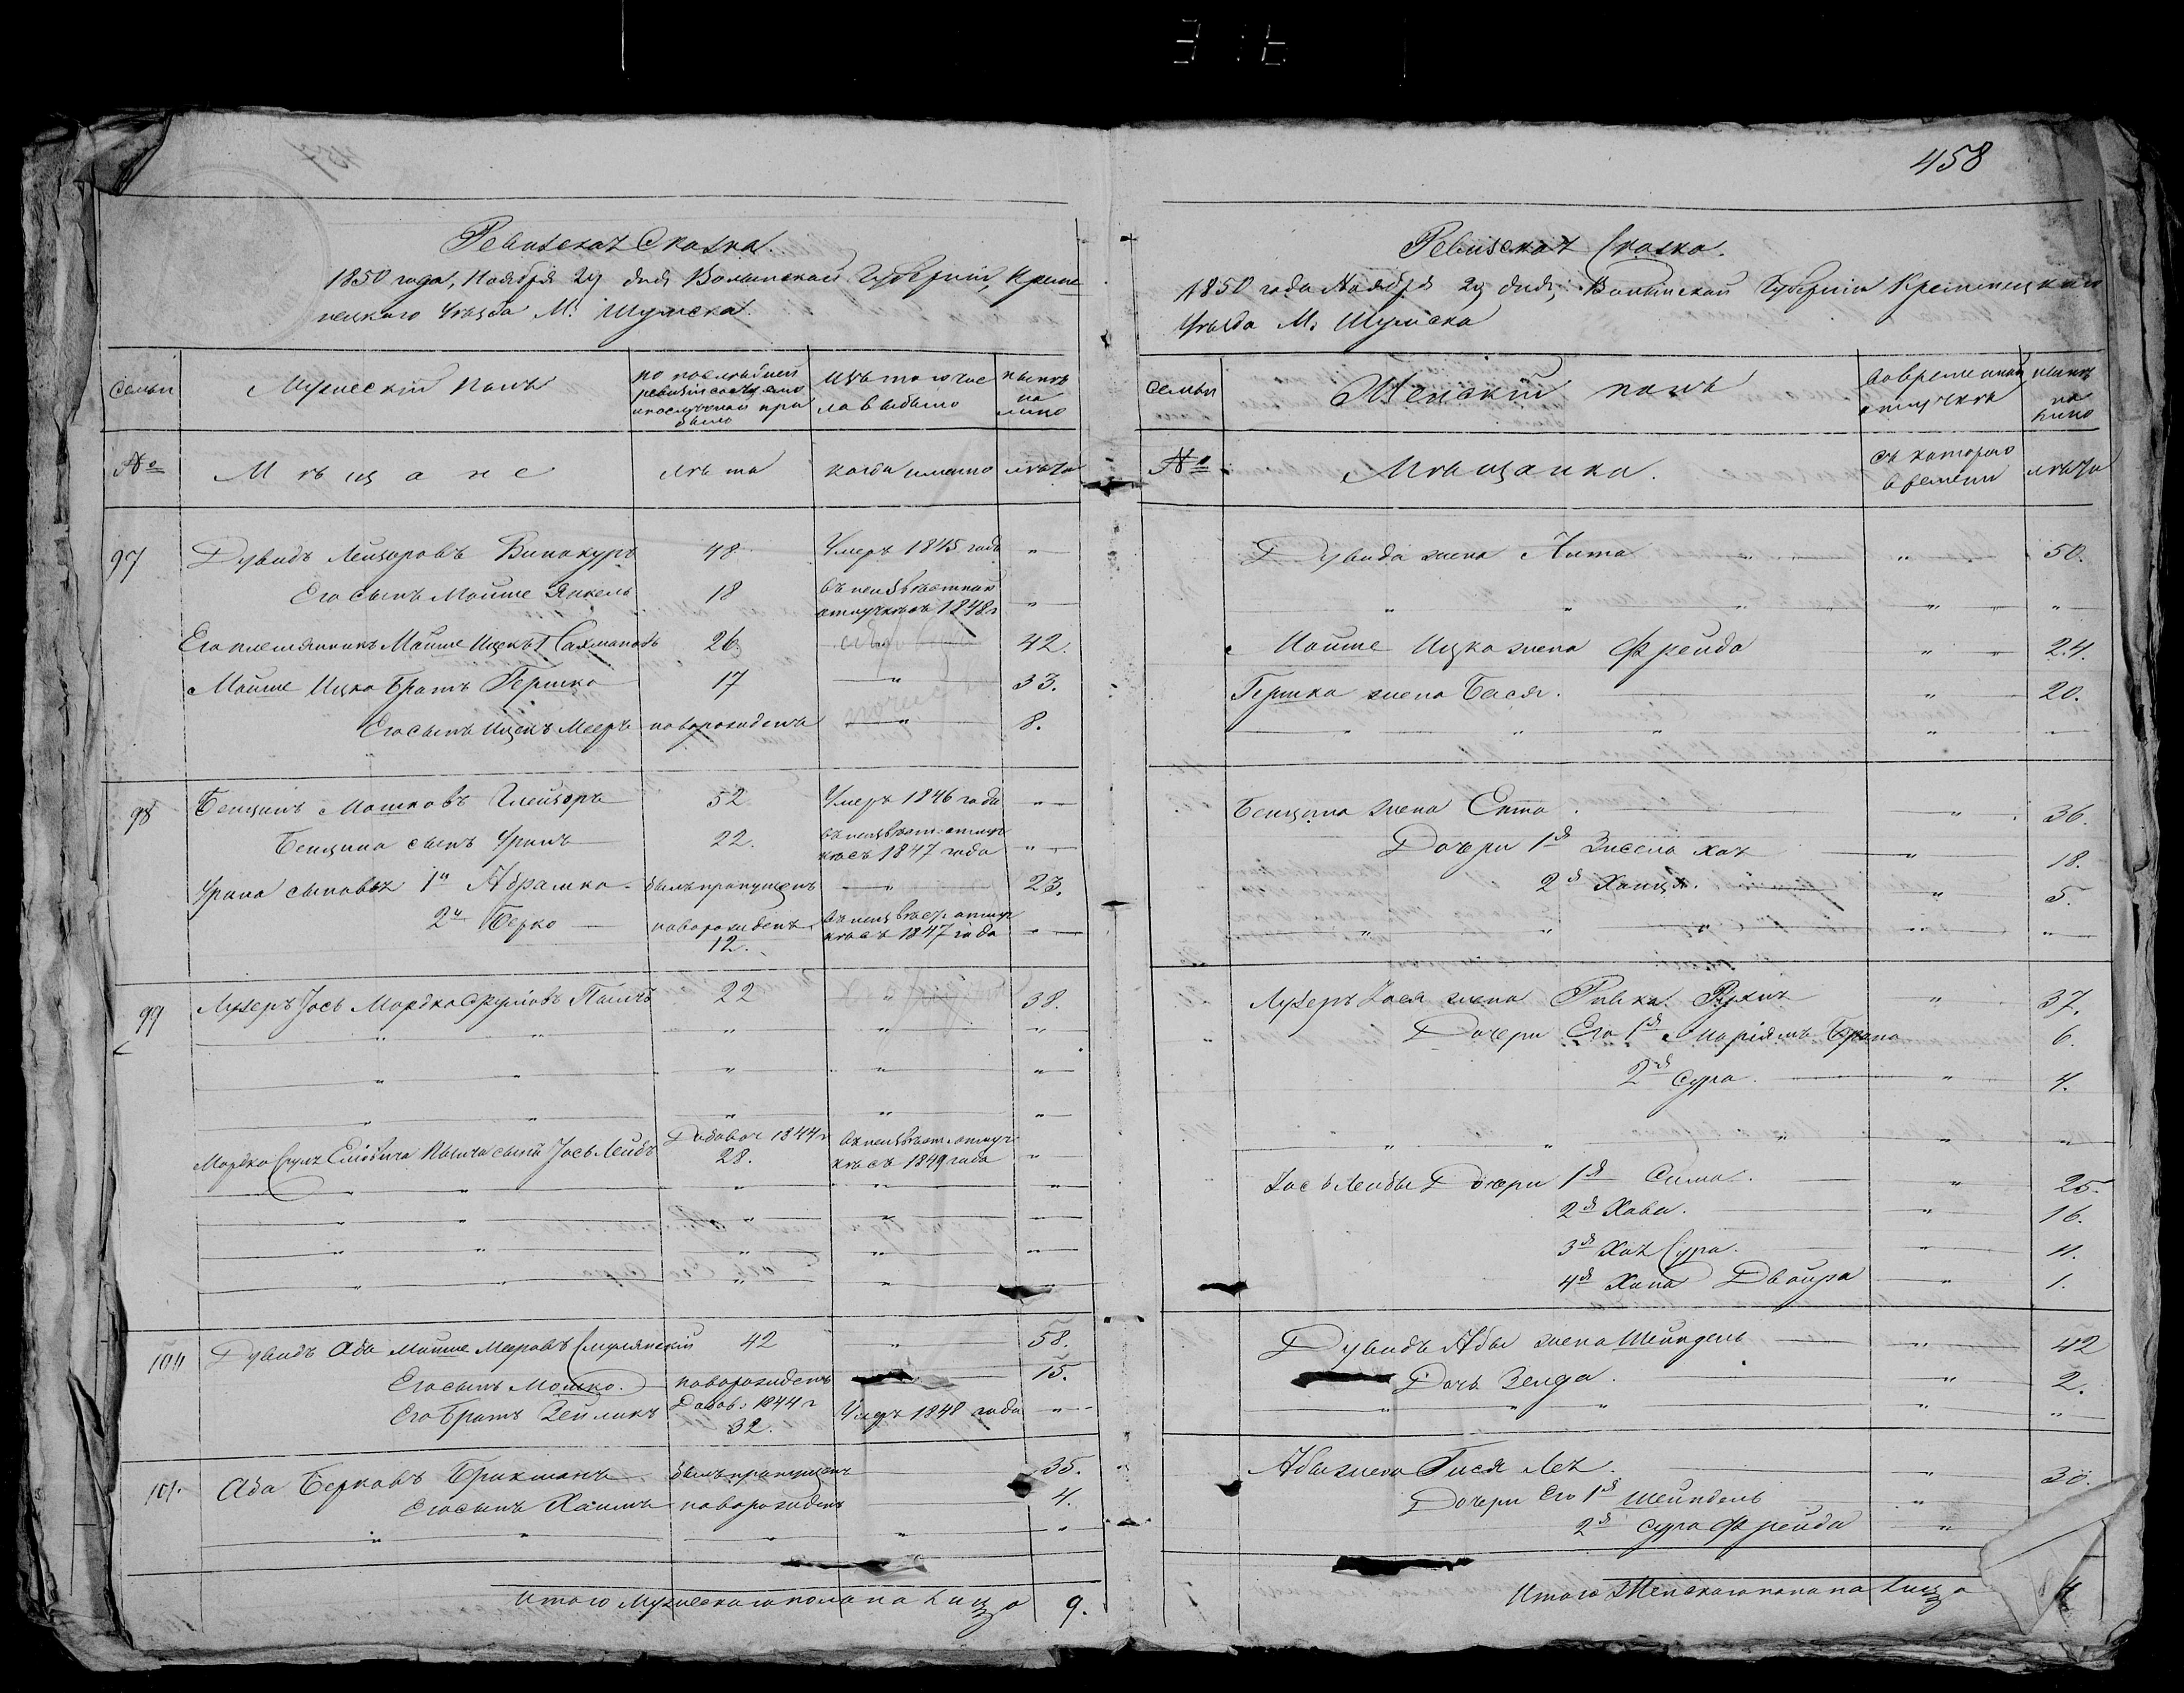 458
Ревизская Сказка.
1850 года, Ноября 29 дня Волынской Губернии, Креме
нецкаго Уѣзда М. Шумска.
Семьи
Мужескій полъ
по послѣдней
ревизіи состояло
и послѣ оной при
было
Изъ того чис
ла выбыло
нынѣ
на
лицо
№
Мѣщане
лѣта
когда именно
лѣта
97
Дувидъ Лейзоровъ Винокуръ
48
Умеръ 1845 года
"
Его сынъ Мойше Янкель
18
въ неизвѣстной
отлучкѣ съ 1848 г
"
Его племянникъ Мойше Ицекъ Нахмановъ
26.
42.
Мойше Ицка братъ Гершко
17
"
33.
Его сынъ Ицекъ Мееръ
новорожденъ
"
8.
98
Бенционъ Мошковъ Глейзоръ
52
Умеръ 1846 года
"
Бенциона сынъ Уринъ
22.
въ неизвѣст. отлуч
кѣ съ 1847 года
"
Урина сыновья 1й Абрамко
былъ пропущенъ
"
23.
2й Берко
новорожденъ
12.
въ неизвѣст. отлуч
кѣ съ 1847 года
"
99
Лузеръ Іось Мордко Сруловъ
22
"
38.
Мордко Сруля сынъ Іось Лейбъ
Добавоч 1844 г
28.
въ неизвѣст. отлуч
кѣ съ 1849 года
"
100
Дувидъ Аба Мойше Мееровъ Смулянскій
42
"
58.
Его сынъ Мошко.
новорожденъ
15.
Его братъ Зейликъ
Добав. 1844 г
32.
Умеръ 1848 года
"
101.
Аба Берковъ Брикманъ
былъ пропущенъ
35.
Его сынъ Хаимъ
новорожденъ
4.
Итого Мужескаго пола на лицо
9.
Ревизская Сказка.
1850 года Ноября 29 дня, Волынской Губернии Кременецкаго
Уѣзда М. Шумска
Семьи
Женскій полъ
во временной
отлучкѣ
нынѣ
на
лицо
№
Мѣщанки.
съ котораго
времени
лѣта
Дувида жена Анта
"
50.
Мойше Ицка жена Фрейда
"
24.
Гершка жена Бася.
"
20.
Бенциона жена Ента
"
36.
Дочери 1я Зисель Хая
"
18.
2я Ханця.
"
5.
Лузеръ Іося жена Ривка Рухля
"
37.
Дочери Его 1я Маріямъ Брана
6.
2я Сура.
"
4.
Іось Лейбы Дочери 1я Сима.
"
25.
2я Хава.
"
16.
3я Хая Сура.
"
11.
4я Хана Двойра
"
1.
Дувидъ Абы жена Шейндель
"
42
Дочь Зелда.
"
2.
Абы жена Гися Лея.
"
30.
Дочери Его 1я Шейндель
"
2я Сура Фрейда
"
Итого Женскаго пола на лицо